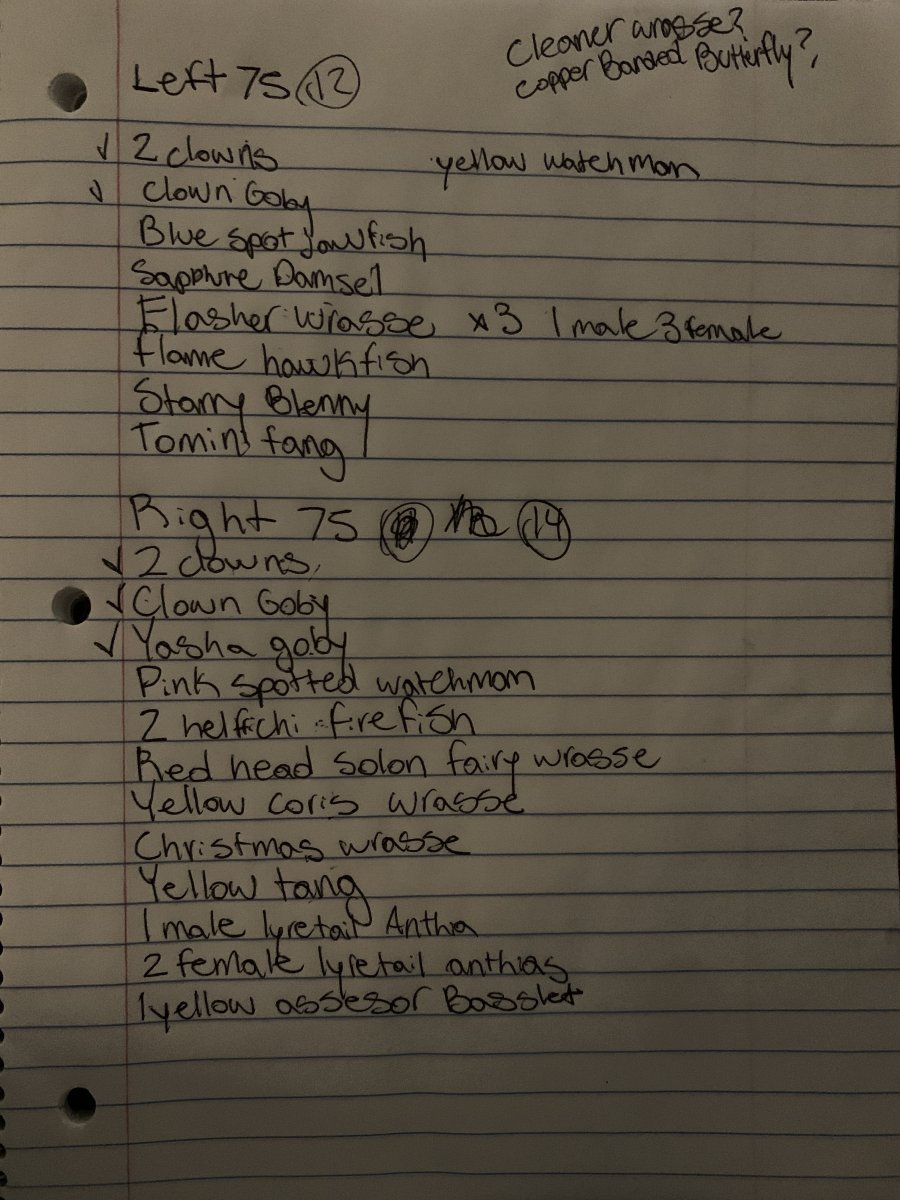 Cleaner wrasse?
Copper Banded Butterfly?,
Left 75 (12)
✓ 2 clowns
yellow watchman
✓ Clown Goby
Blue spot Jawfish
Sapphire Damsel
Flasher wrasse x3 1 male 3 female
flame hawkfish
Starry Blenny
Tomini tang
Right 75 (14)
✓ 2 clowns,
✓ Clown Goby
✓ Yasha goby
Pink spotted watchman
2 helfichi firefish
Red head solon fairy wrasse
Yellow coris wrasse
Christmas wrasse
Yellow tang
1 male lyretail Anthia
2 female lyretail anthias
1 yellow assesor Basslet